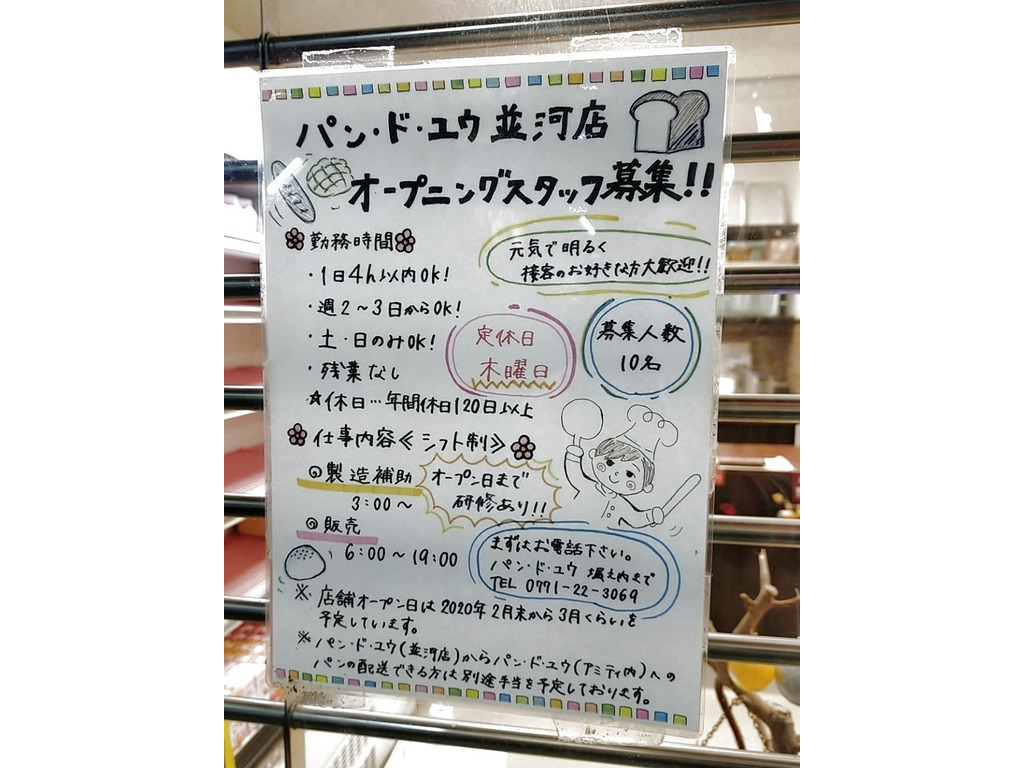 パン・ド・ユウ並河店
オープニングスタッフ募集!!
勤務時間
・1日4h以内OK!
・週2～3日からOK!
・土・日のみOK!
・残業なし
☆休日…年間休日120日以上
元気で明るく
接客のお好きな方大歓迎!!
定休日
木曜日
募集人数
10名
仕事内容≪シフト制≫
◎製造補助
3:00～
オープン日まで
研修あり!!
◎販売
6:00～19:00
まずはお電話下さい。
パン・ド・ユウ 堀之内まで
TEL 0771-22-3069
※ 店舗オープン日は2020年2月末から3月くらいを
予定しています。
※パン・ド・ユウ(並河店)からパン・ド・ユウ(アミティ内)への
パンの配送できる方は別途手当を予定しております。